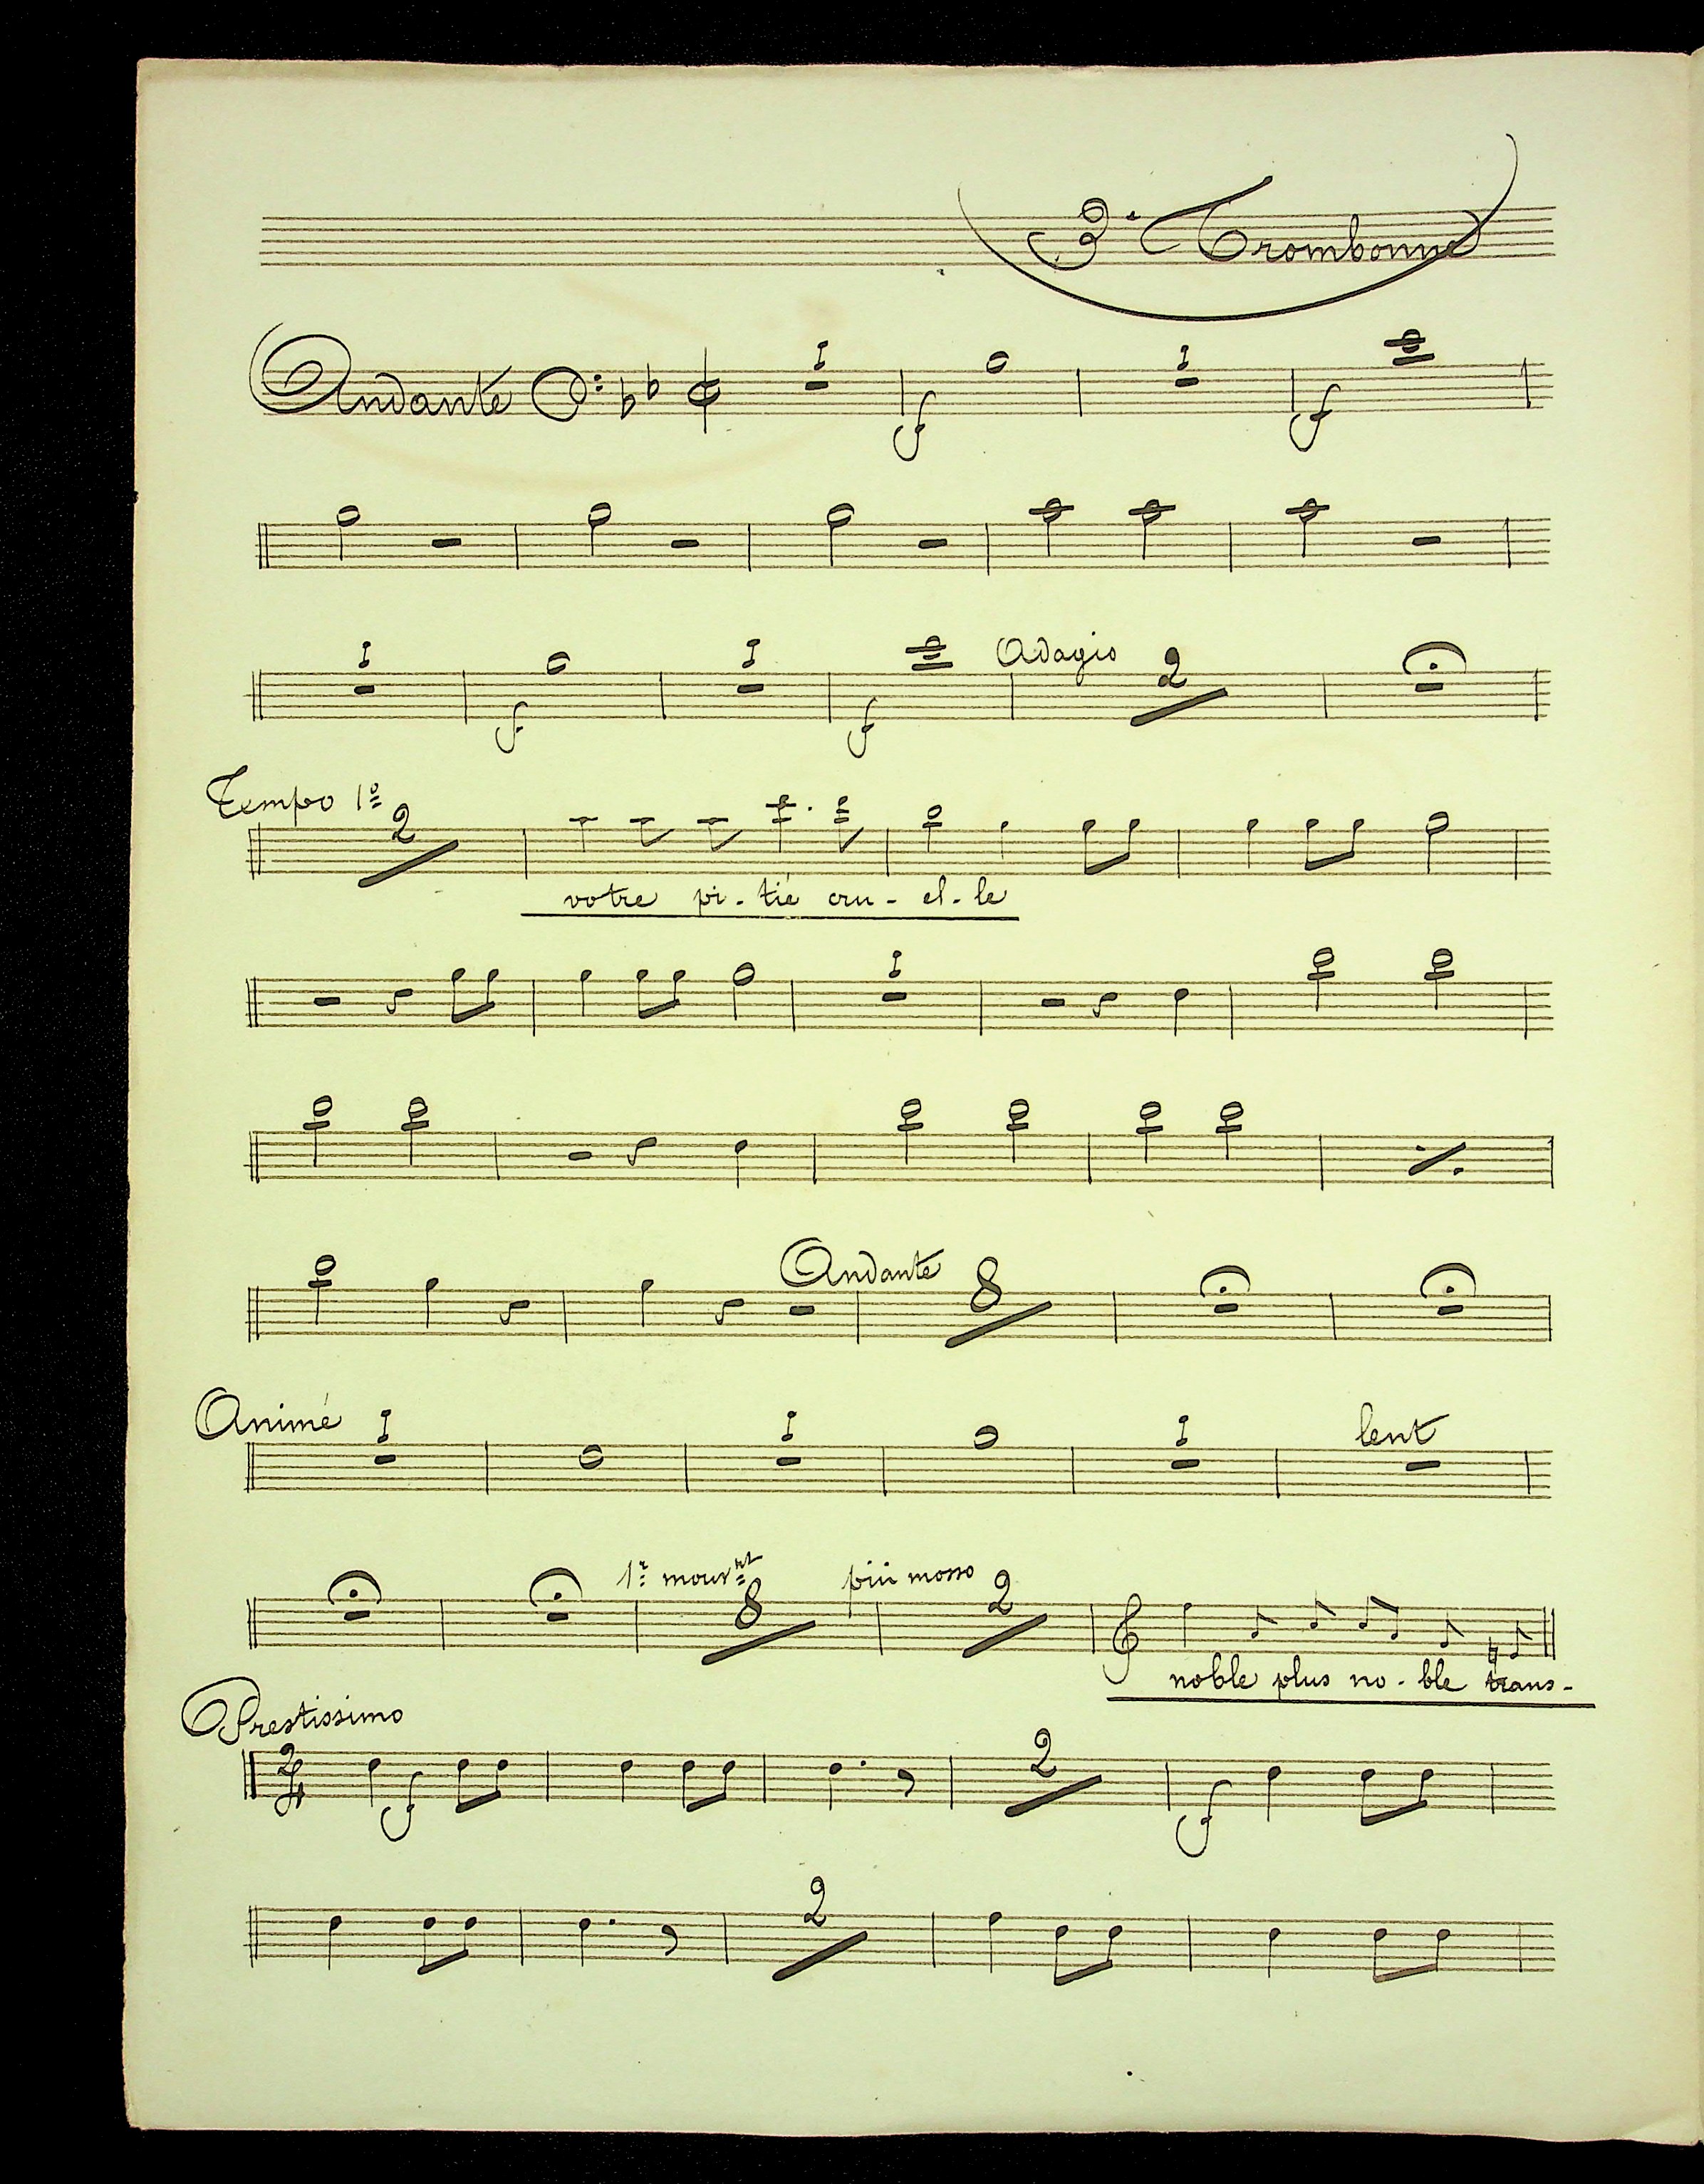 3e Trombonne
Andante
1 1
f f
1 1 Adagio 2
f f
Tempo 1o 2
votre pi - tié cru - el - le
1
Andante 8
Animé 1 1 1 lent
1r mouvnt 8 più mosso 2
noble plus no - ble trans -
Prestissimo
2/4 2
f f
2